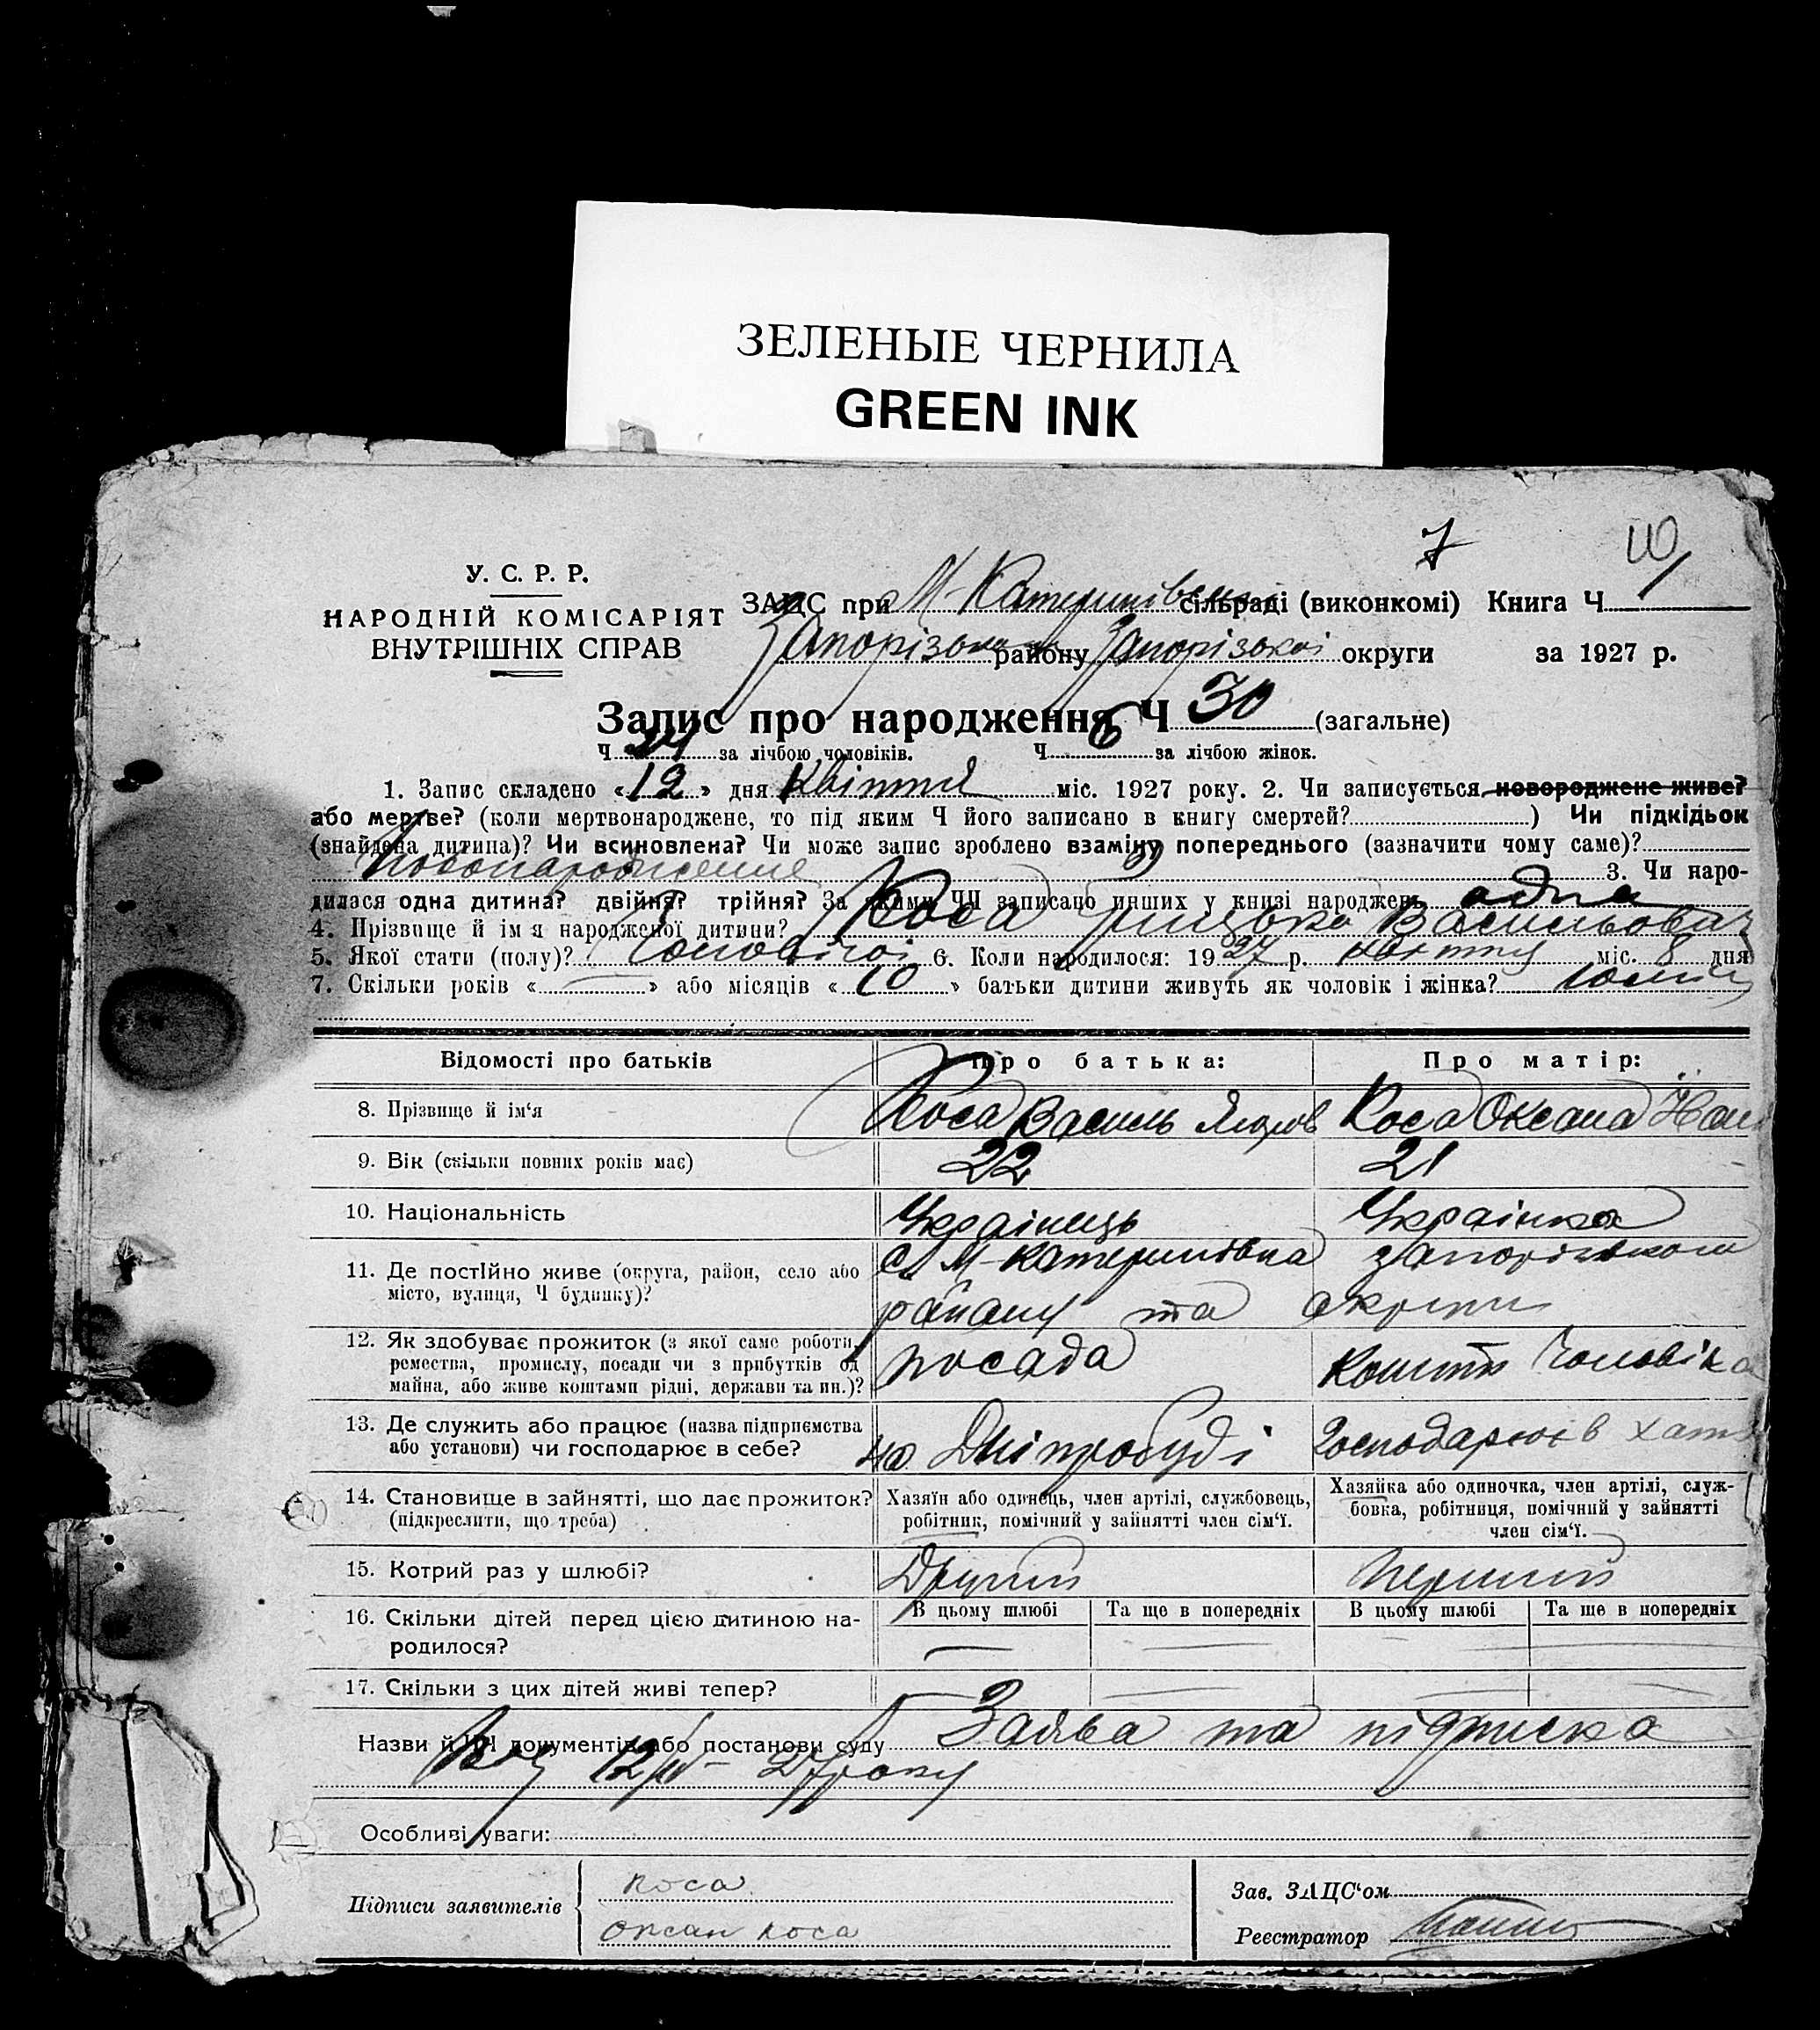 ЗЕЛЕНЫЕ ЧЕРНИЛА
GREEN INK
7
10
У. С. Р. Р.
НАРОДНІЙ КОМІСАРІЯТ
ВНУТРІШНІХ СПРАВ
ЗАЦС при М-Катеринівській сільраді (виконкомі) Книга Ч.
Запорізького району Запорізької округи за 1927 р.
Запис про народження Ч 30 (загальне)
Ч 24 за лічбою чоловіків. Ч 6 за лічбою жінок.
1. Запис складено «12» дня Квітня міс. 1927 року. 2. Чи записується новороджене живе?
або мертве? (коли мертвонароджене, то під яким Ч його записано в книгу смертей?) Чи підкідьок
(знайдена дитина)? Чи всиновлена? Чи може запис зроблено взаміну попереднього (зазначити чому саме)?
Новонароджене 3. Чи наро-
дилася одна дитина? двійня? трійня? За якими ЧЧ записано инших у книзі народжень одна
4. Прізвище й ім'я народженої дитини? Коса Грицько Васильович
5. Якої стати (полу)? Чоловічої 6. Коли народилося: 1927 р. квітня міс. 8 дня
7. Скільки років « — » або місяців « 10 » батьки дитини живуть як чоловік і жінка?
Відомості про батьків
Про батька:
Про матір:
8. Прізвище й ім'я
Коса Василь
Коса Оксана
9. Вік (скільки повних років має)
22
21
10. Національність
Українець
Українка
11. Де постІйно живе (округа, район, село або
місто, вулиця, Ч будинку)?
с. М-Катеринівка Запорізького
району та округи
12. Як здобуває прожиток (з якої саме роботи,
ремества, промислу, посади чи з прибутків од
майна, або живе коштами рідні, держави та ин.)?
посада
Кошти Чоловіка
13. Де служить або працює (назва підприємства
або установи) чи господарює в себе?
на Дніпробуді
Господарює в хаті
14. Становище в зайнятті, що дає прожиток?
(підкреслити, що треба)
Хазяїн або одинець, член артілі, службовець,
робітник, помічний у зайнятті член сім'ї.
Хазяйка або одиночка, член артілі, служ-
бовка, робітниця, помічний у зайнятті
член сім'ї.
15. Котрий раз у шлюбі?
Другий
Перший
16. Скільки дітей перед цією дитиною на-
родилося?
В цьому шлюбі
Та ще в попередніх
В цьому шлюбі
Та ще в попередніх
17. Скільки з цих дітей живі тепер?
Назви й ЧЧ документів або постанови суду Заява та підписка
12/IV - 27 року
Особливі уваги:
Підписи заявителів
Коса
Оксан Коса
Зав. ЗАЦС'ом
Реєстратор